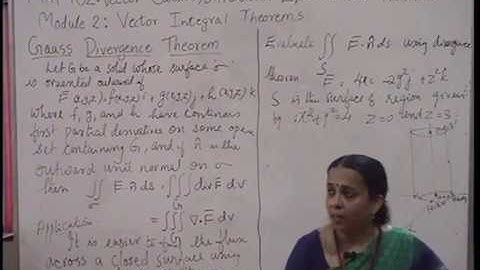 Module 2: Vector Integral Theorems
Gauss Divergence Theorem
Let G be a solid whose surface σ
is oriented outward if
where f, g, and h have continous
first partial derivatives on some open
set containing G, and if n̂ is the
outward unit normal on σ
then ∬ F̄·n̂ ds = ∭ div F̄ dv
= ∭ ∇·F̄ dv
Application
It is easier to find the flux
across a closed surface using
Evaluate ∬ F̄·n̂ ds using divergence
S
theorem F̄ = 4xi - 2y²j + z²k
S is the surface of region given
by x²+y²=4 z=0 and z=3